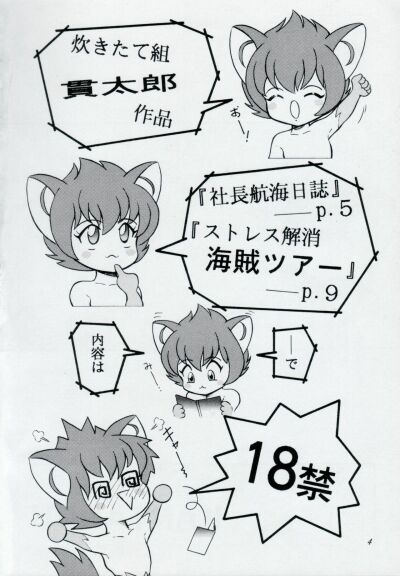 炊きたて組
貫太郎
作品
お〜!
『社長航海日誌』
――p.5
『ストレス解消
海賊ツアー』
――p.9
――で
内容は
み〜…
キャ〜
18禁
4